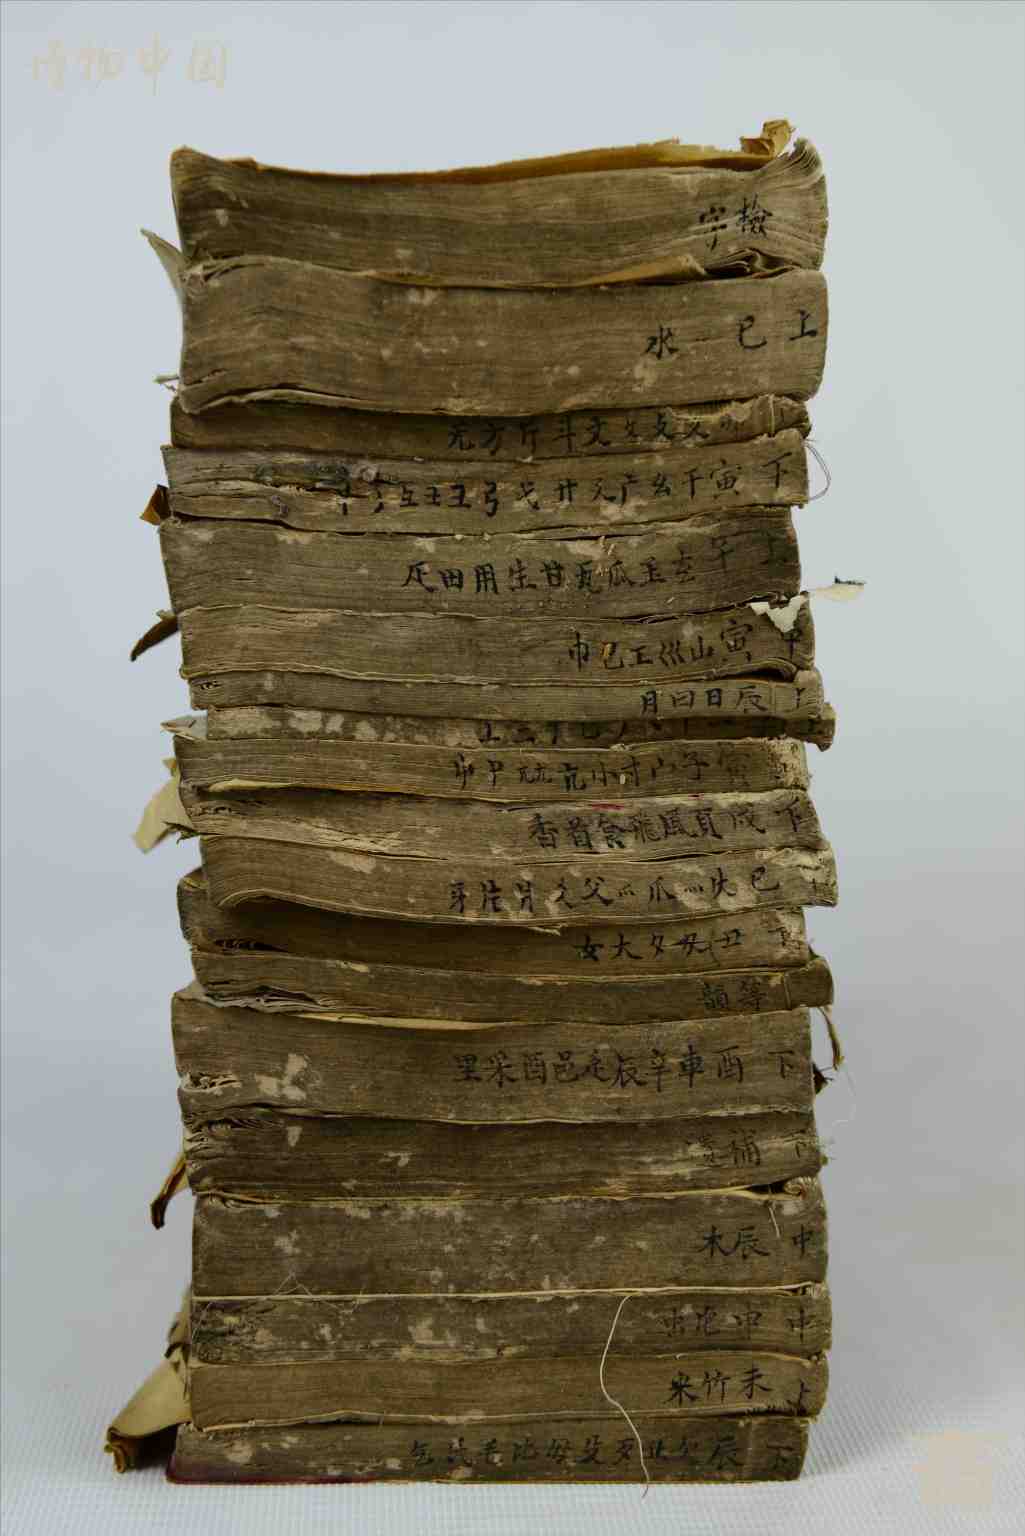 博物中国
檢字
上巳水
文斗斤方无
下寅干幺广廴廾弋弓彐
上午玄玉瓜瓦甘生用田疋
中寅山巛工己巾
上辰日曰月
寅子宀寸小
下戌頁風飛食首香
巳火灬爪爫父爻爿片牙
下丑夕大女
等韻
下酉車辛辰辵邑酉釆里
下補遺
中辰木
中申虍虫
上未竹米
下辰欠止歹殳毋比毛氏气